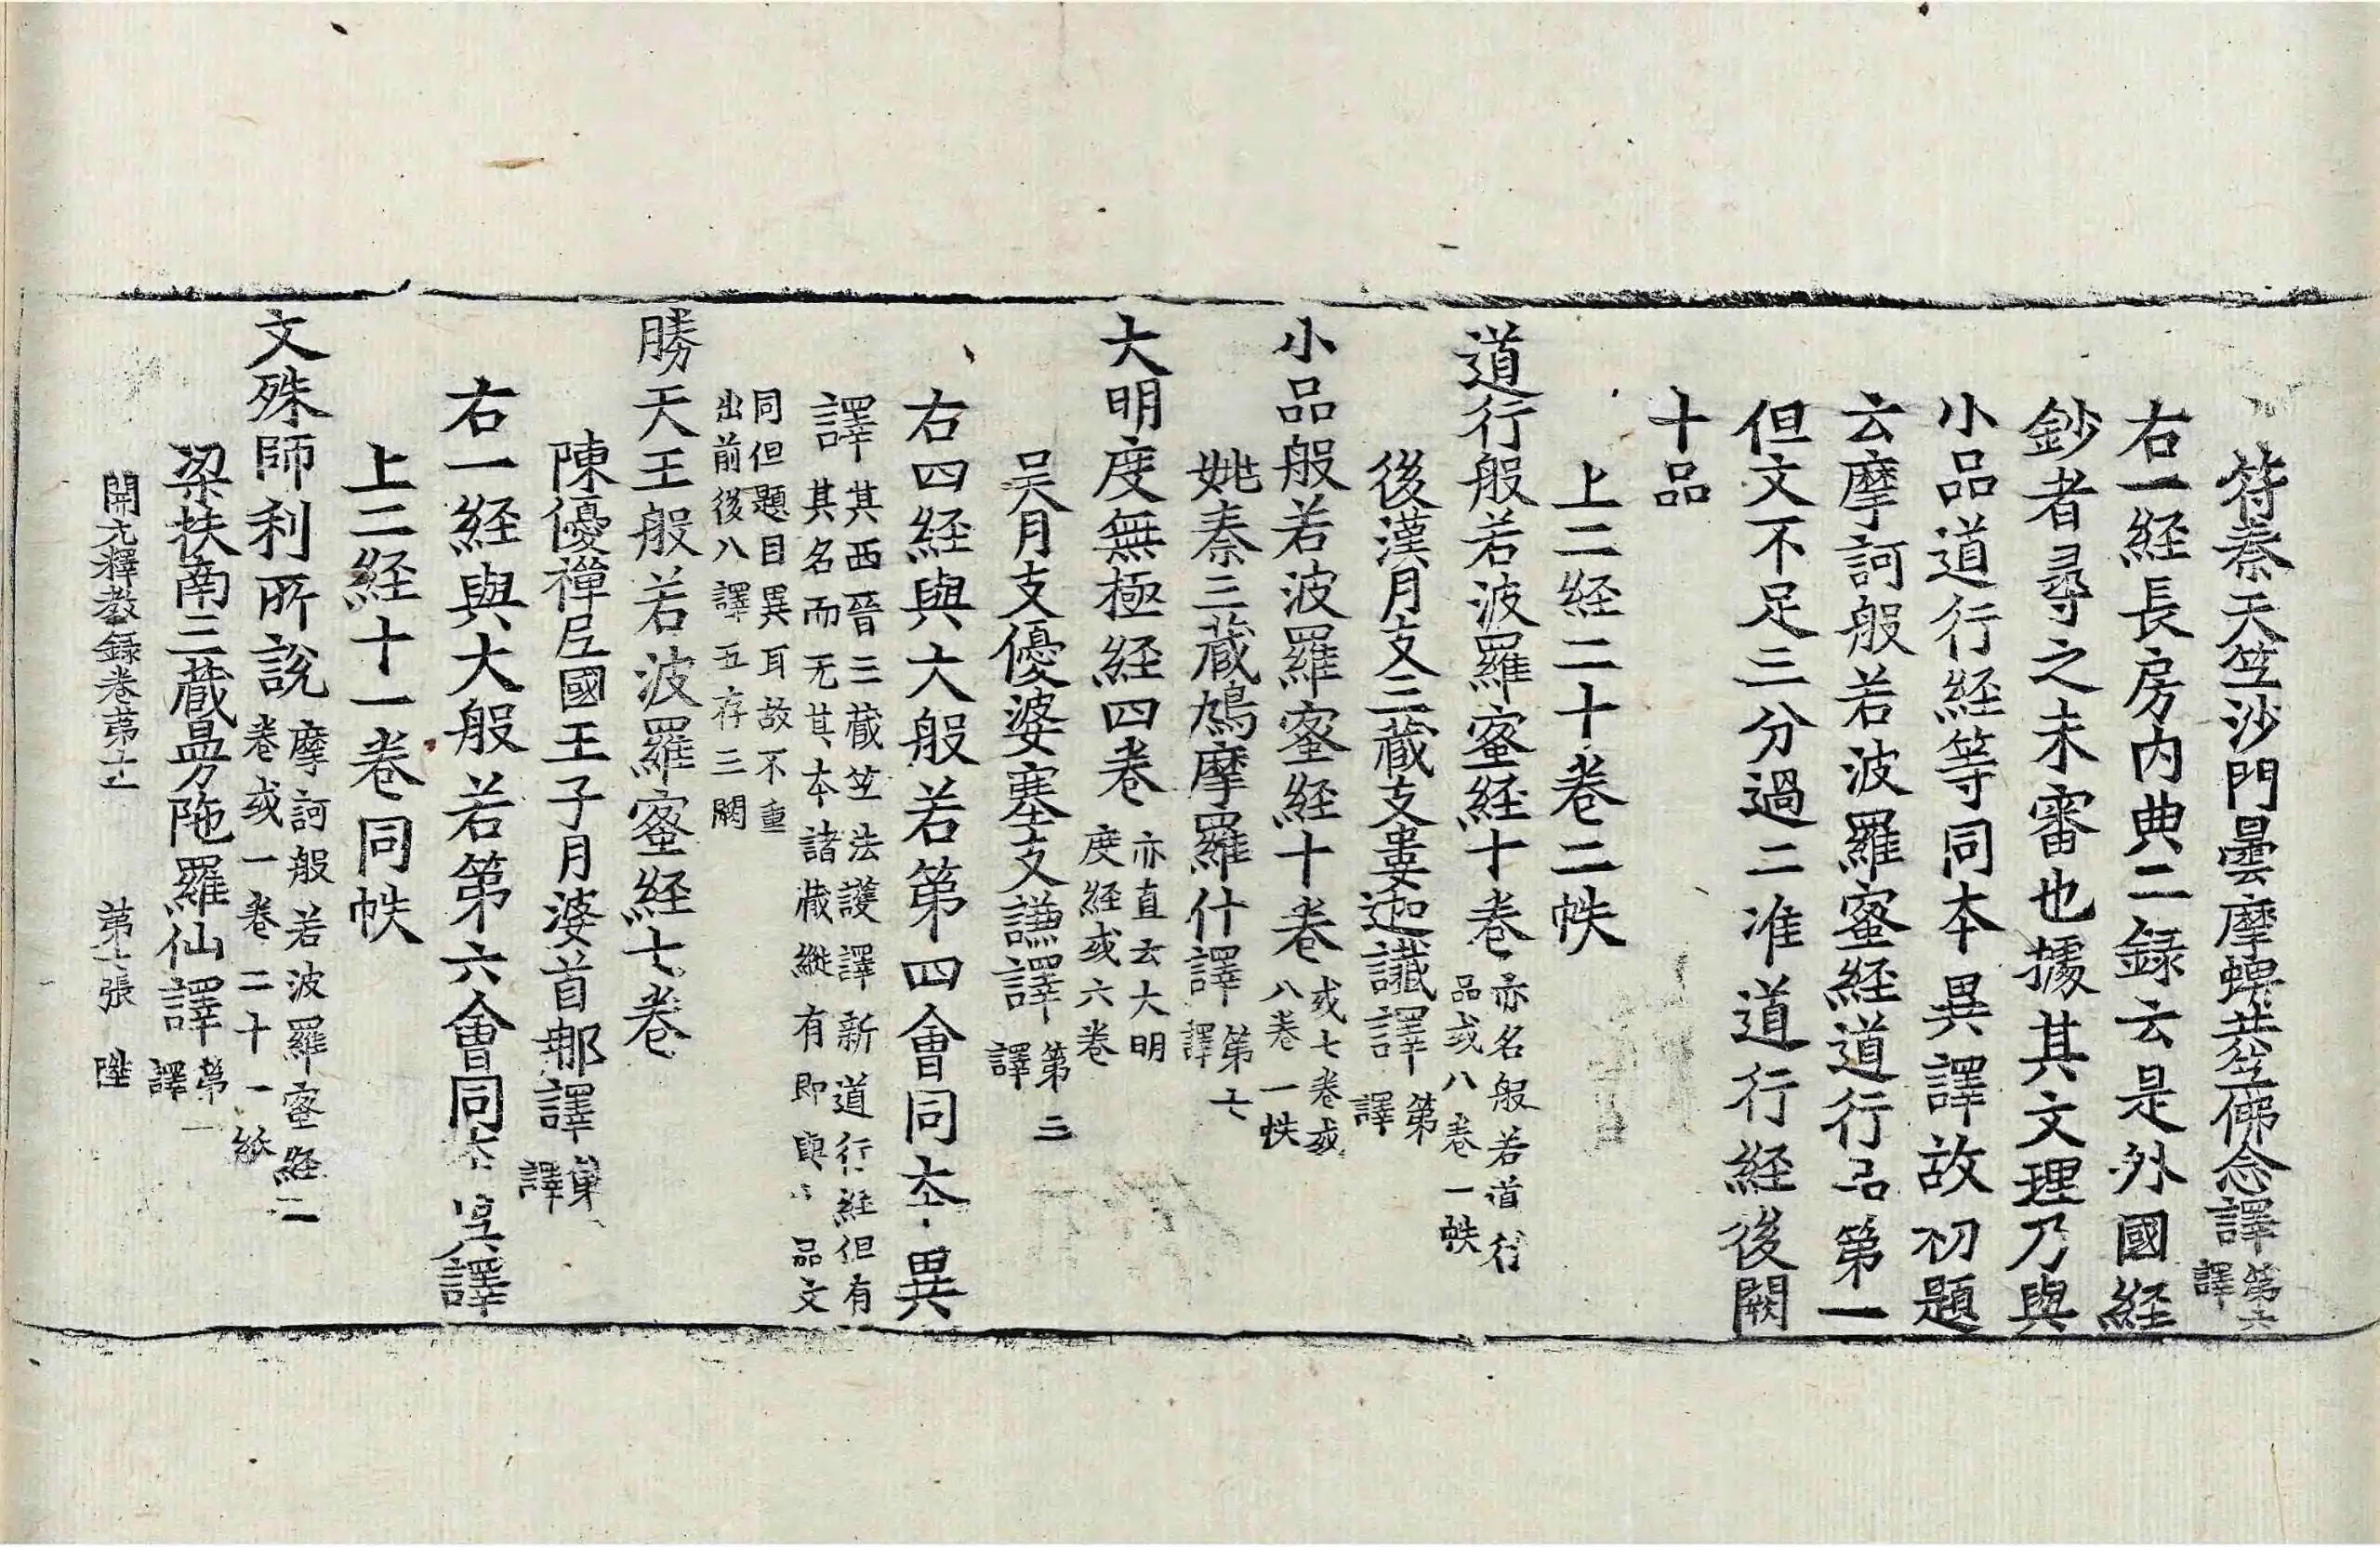 符秦天竺沙門曇摩蜱共竺佛念譯第六譯
右一経長房內典二録云是外國經
鈔者尋之未審也據其文理乃與
小品道行経等同本異譯故初題
云摩訶般若波羅蜜經道行品第一
但文不足三分過二准道行経後闕
十品
上二経二十卷二帙
道行般若波羅蜜経十卷亦名般若道行品或八卷一帙
後漢月支三藏支婁迦讖譯第譯
小品般若波羅蜜經十卷或七卷或八卷一帙
姚秦三藏鳩摩羅什譯第七譯
大明度無極経四卷亦直云大明度経或六卷
吴月支優婆塞支謙譯第三譯
右四経與大般若第四會同本異
譯其西晉三藏竺法護譯新道行経但有其名而无其本諸藏縱有即與品文
同但題目異耳故不重出前後八譯五存三闕
勝天王般若波羅蜜経七卷
陳優禪尼國王子月婆首那譯第譯
右一経與大般若第六會同本異譯
上二経十一卷同帙
文殊師利所說摩訶般若波羅蜜經二卷或一卷二十一紙
梁扶南三藏曼陁羅仙譯第一譯
開元釋教録卷第十一 第七張 陞